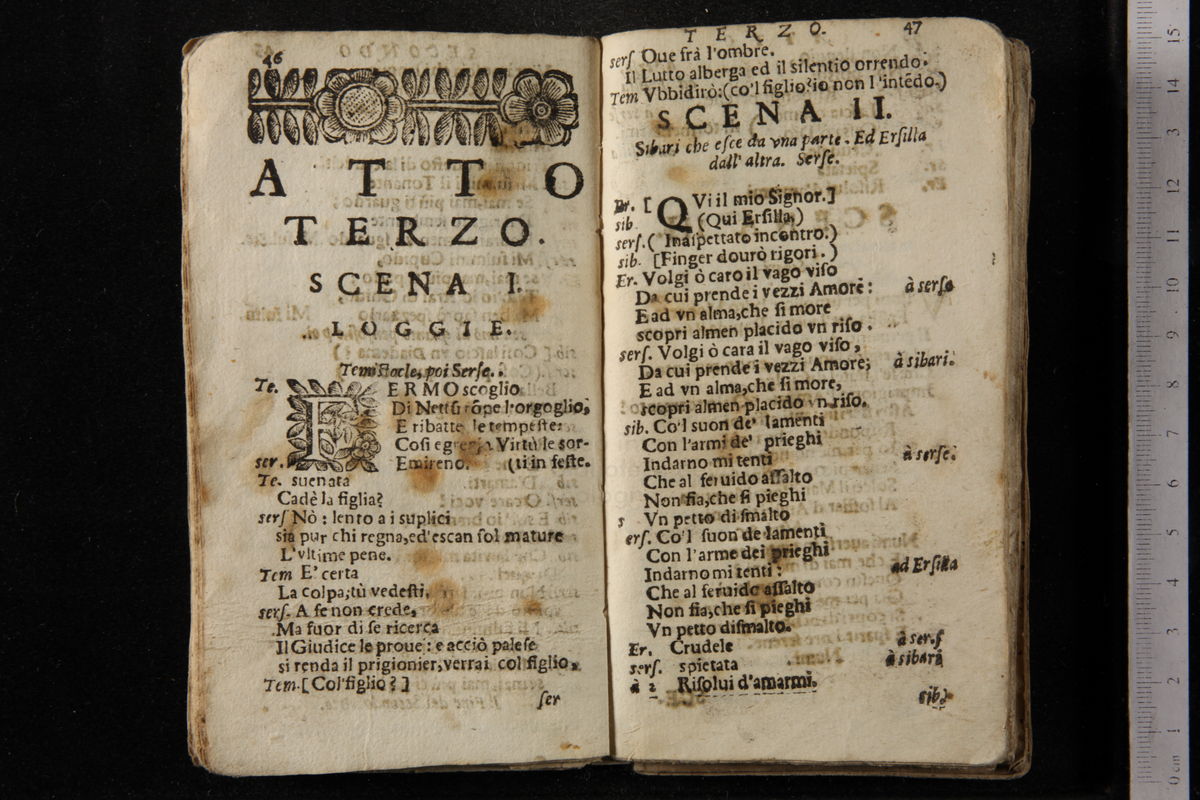 46
ATTO
TERZO.
SCENA I.
LOGGIE.
Temistocle, poi Serse.
Te. FERMO scoglio
Di Nettū rōpe l'orgoglio,
E ribatte le tempeste:
Cosi egregia Virtù le sor-
ser. Emireno. (ti in feste.
Te. suenata
Cadè la figlia?
sers Nò: lento a i suplici
sia pur chi regna, ed'escan sol mature
L'vltime pene.
Tem E' certa
La colpa; tù vedesti.
sers. A se non crede,
Ma fuor di se ricerca
Il Giudice le proue: e acciò palese
si renda il prigionier, verrai col figlio,
Tem. [Col'figlio?]
ser
TERZO. 47
sers Oue frà l'ombre.
Il Lutto alberga ed il silentio orrendo.
Tem Vbbidirò: (co'l figlio? io non l'intēdo.)
SCENA II.
Sibari che esce da vna parte. Ed Ersilla
dall' altra. Serse.
Er. [QVi il mio Signor.]
sib. (Qui Ersilla,)
sers. (Inaspettato incontro.)
sib. [Finger dourò rigori.)
Er. Volgi ò caro il vago viso
Da cui prende i vezzi Amore: à serse
E ad vn alma, che si more
scopri almen placido vn riso.
sers. Volgi ò cara il vago viso,
Da cui prende i vezzi Amore; à sibari.
E ad vn alma, che si more,
scopri almen placido vn riso.
sib. Co'l suon de' lamenti
Con l'armi de' prieghi
Indarno mi tenti à serse.
Che al feruido assalto
Non fia, che si pieghi
s Vn petto di smalto
ers. Co'l suon de lamenti
Con l'arme dei prieghi
Indarno mi tenti: ad Ersilla
Che al feruido assalto
Non fia, che si pieghi
Vn petto dismalto.
Er. Crudele à ser.s
sers. spietata à sibari
à 2 Risolui d'amarmi.
sib.